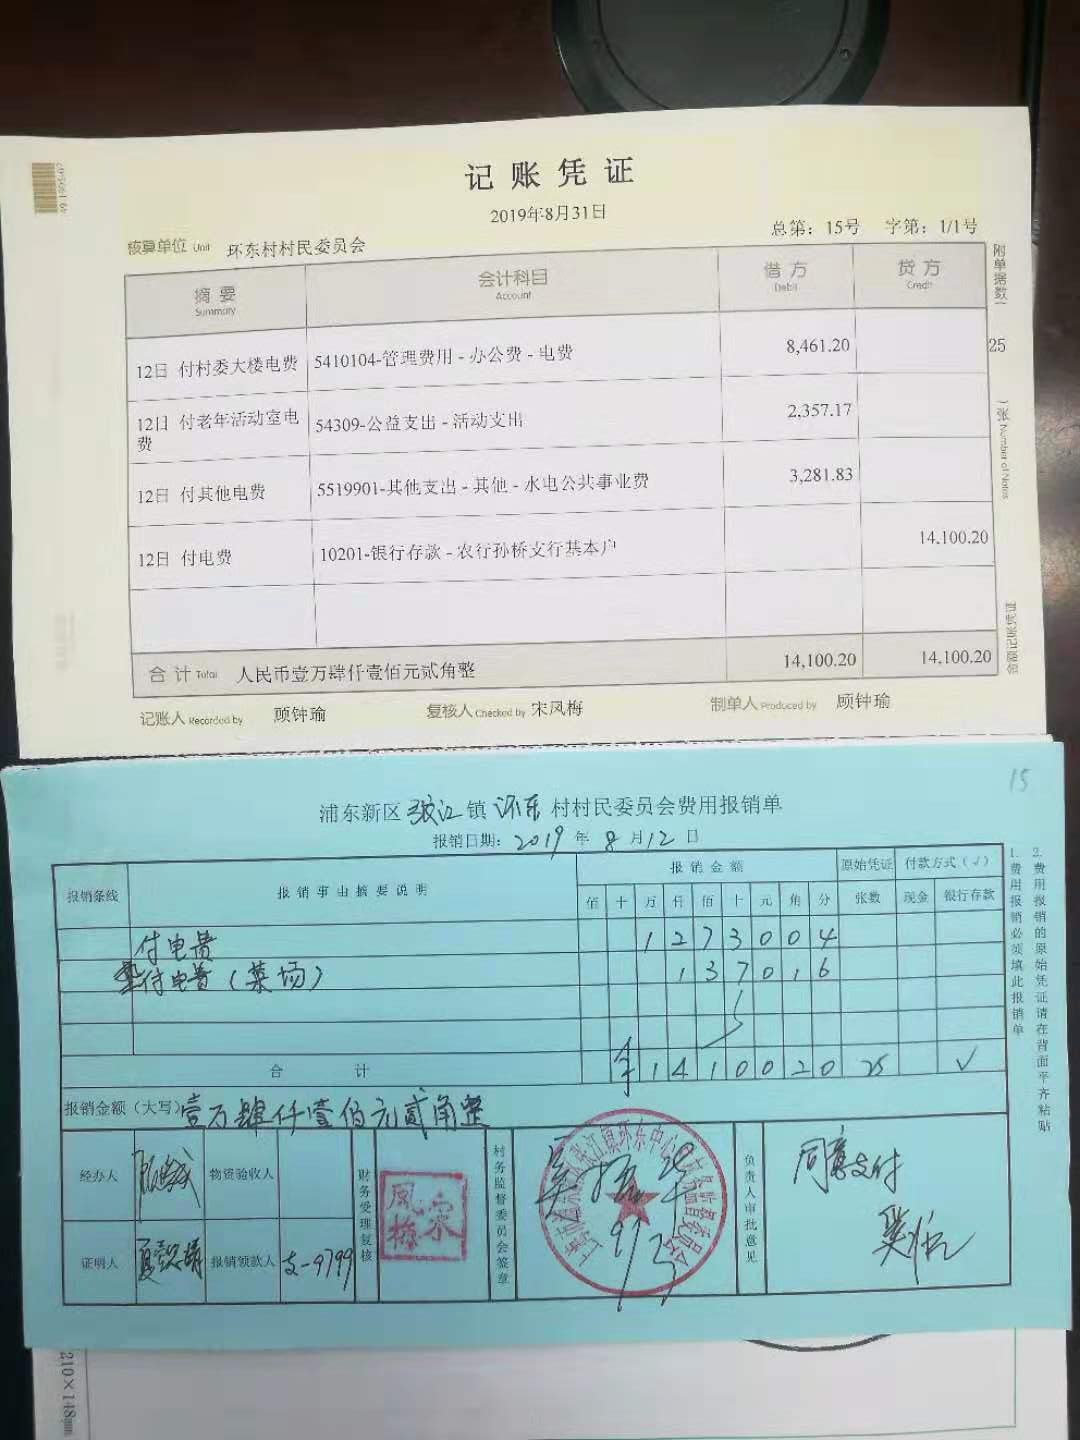 记账凭证
2019年8月31日
总第：15号 字第：1/1号
核算单位 Unit 环东村村民委员会
摘要 会计科目 借方 贷方
Summary Account Debit Credit
附单据数（ 25 ）张 Number of Notes
12日 付村委大楼电费 5410104-管理费用 - 办公费 - 电费 8,461.20
12日 付老年活动室电费 54309-公益支出 - 活动支出 2,357.17
12日 付其他电费 5519901-其他支出 - 其他 - 水电公共事业费 3,281.83
12日 付电费 10201-银行存款 - 农行孙桥支行基本户 14,100.20
合计 Total 人民币壹万肆仟壹佰元贰角整 14,100.20 14,100.20
金额记账凭证
记账人 Recorded by 顾钟瑜 复核人 Checked by 宋凤梅 制单人 Produced by 顾钟瑜
15
浦东新区张江镇环东村村民委员会费用报销单
报销日期：2019年8月12日
报销条线 报销事由摘要说明 报销金额 原始凭证张数 付款方式（√）
佰 十 万 仟 佰 十 元 角 分 现金 银行存款
付电费 1 2 7 3 0 0 4
垫付电费（菜场） 1 3 7 0 1 6
合计 ¥ 1 4 1 0 0 2 0 25 √
报销金额（大写）壹万肆仟壹佰元贰角整
1.费用报销必须填此报销单
2.费用报销的原始凭证请在背面平齐粘贴
经办人 物资验收人
证明人 报销领款人 支-9799
财务受理复核
宋凤梅
村务监督委员会签章
负责人审批意见
同意支付
210×148mm